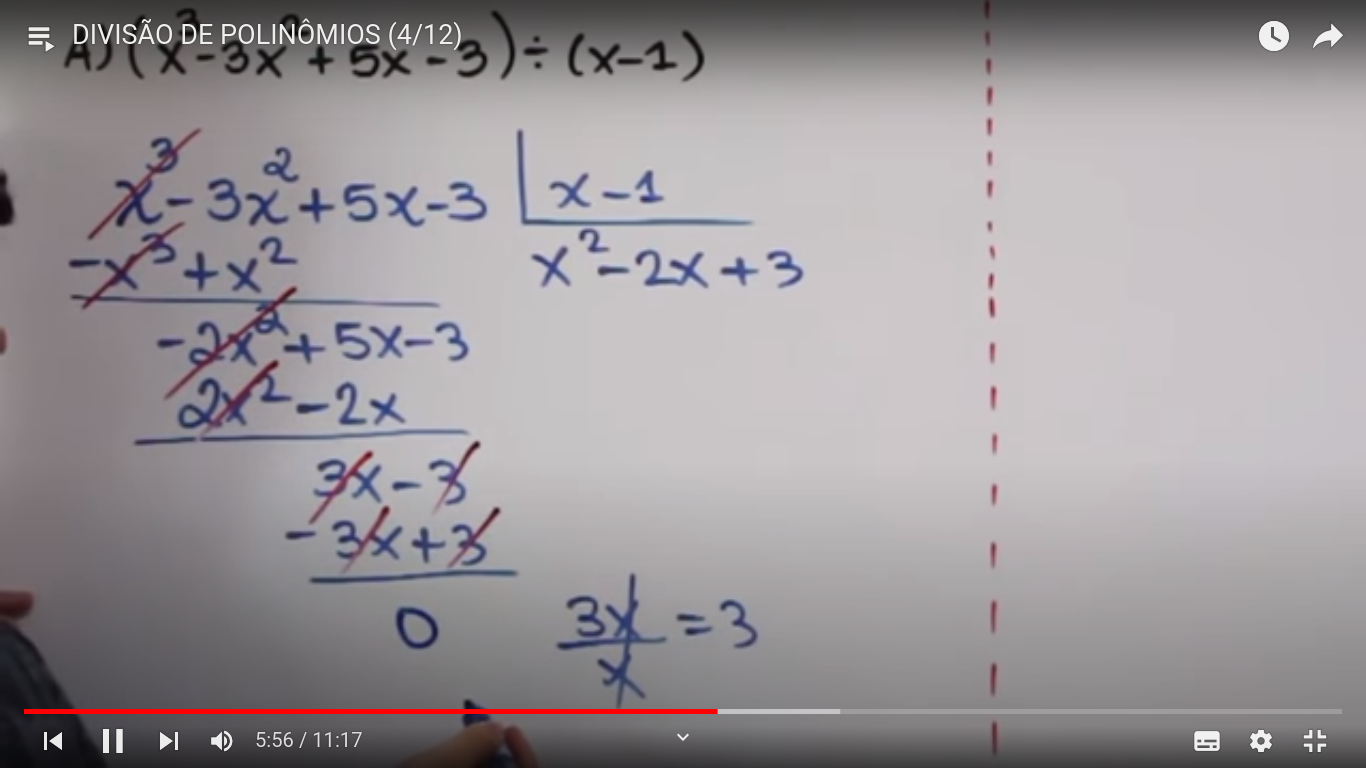 DIVISÃO DE POLINÔMIOS (4/12)
A) (x³-3x²+5x-3)÷(x-1)
x³-3x²+5x-3 | x-1
-x³+x² x²-2x+3
-2x²+5x-3
2x²-2x
3x-3
-3x+3
0
3x/x = 3
5:56 / 11:17